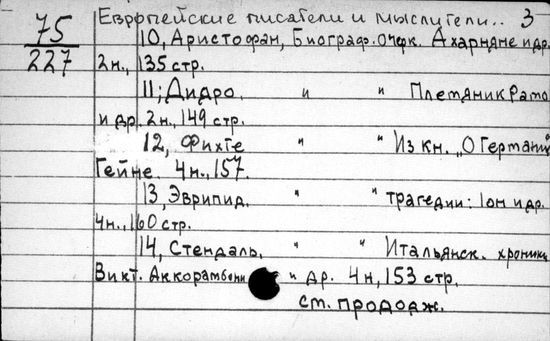 75
227
Европейские писатели и мыслители.. 3
10, Аристофан, Биограф. очерк. Ахарняне и др.
2н., 135 стр.
11; Дидро. " " Племяник Рамо
и др. 2н., 149 стр.
12, Фихте " " Из кн. „О Германии
Гейне. 4н., 157.
13, Эврипид. " " трагедии: Ион и др.
4н., 160 стр.
14, Стендаль. " " Итальянск. хроники
Викт. Аккорамбони и др. 4н, 153 стр.
см. продолж.